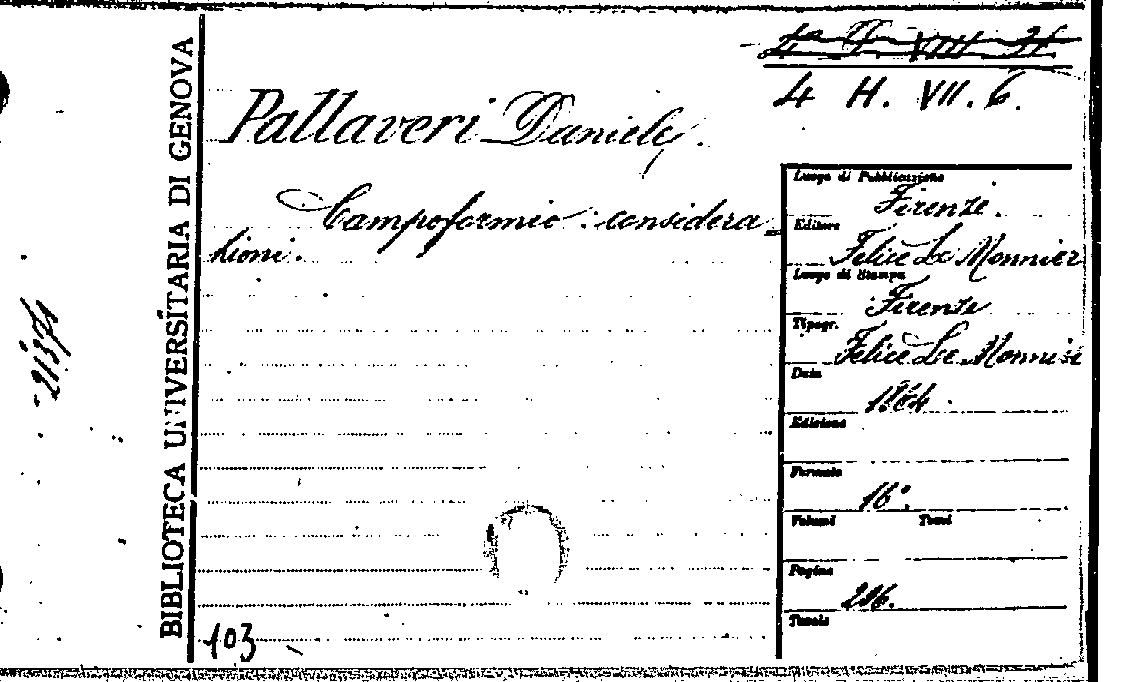 BIBLIOTECA UNIVERSITARIA DI GENOVA
4 H. VII. 6.
Pallaveri Daniele.
Campoformio: considera
zioni.
Luogo di Pubblicazione
Firenze.
Editore
Felice Le Monnier
Luogo di Stampa
Firenze
Tipogr.
Felice Le Monnier
Data
1864.
Edizione
Formato
16°.
Volumi Tomi
Pagine
216.
Tavole
103